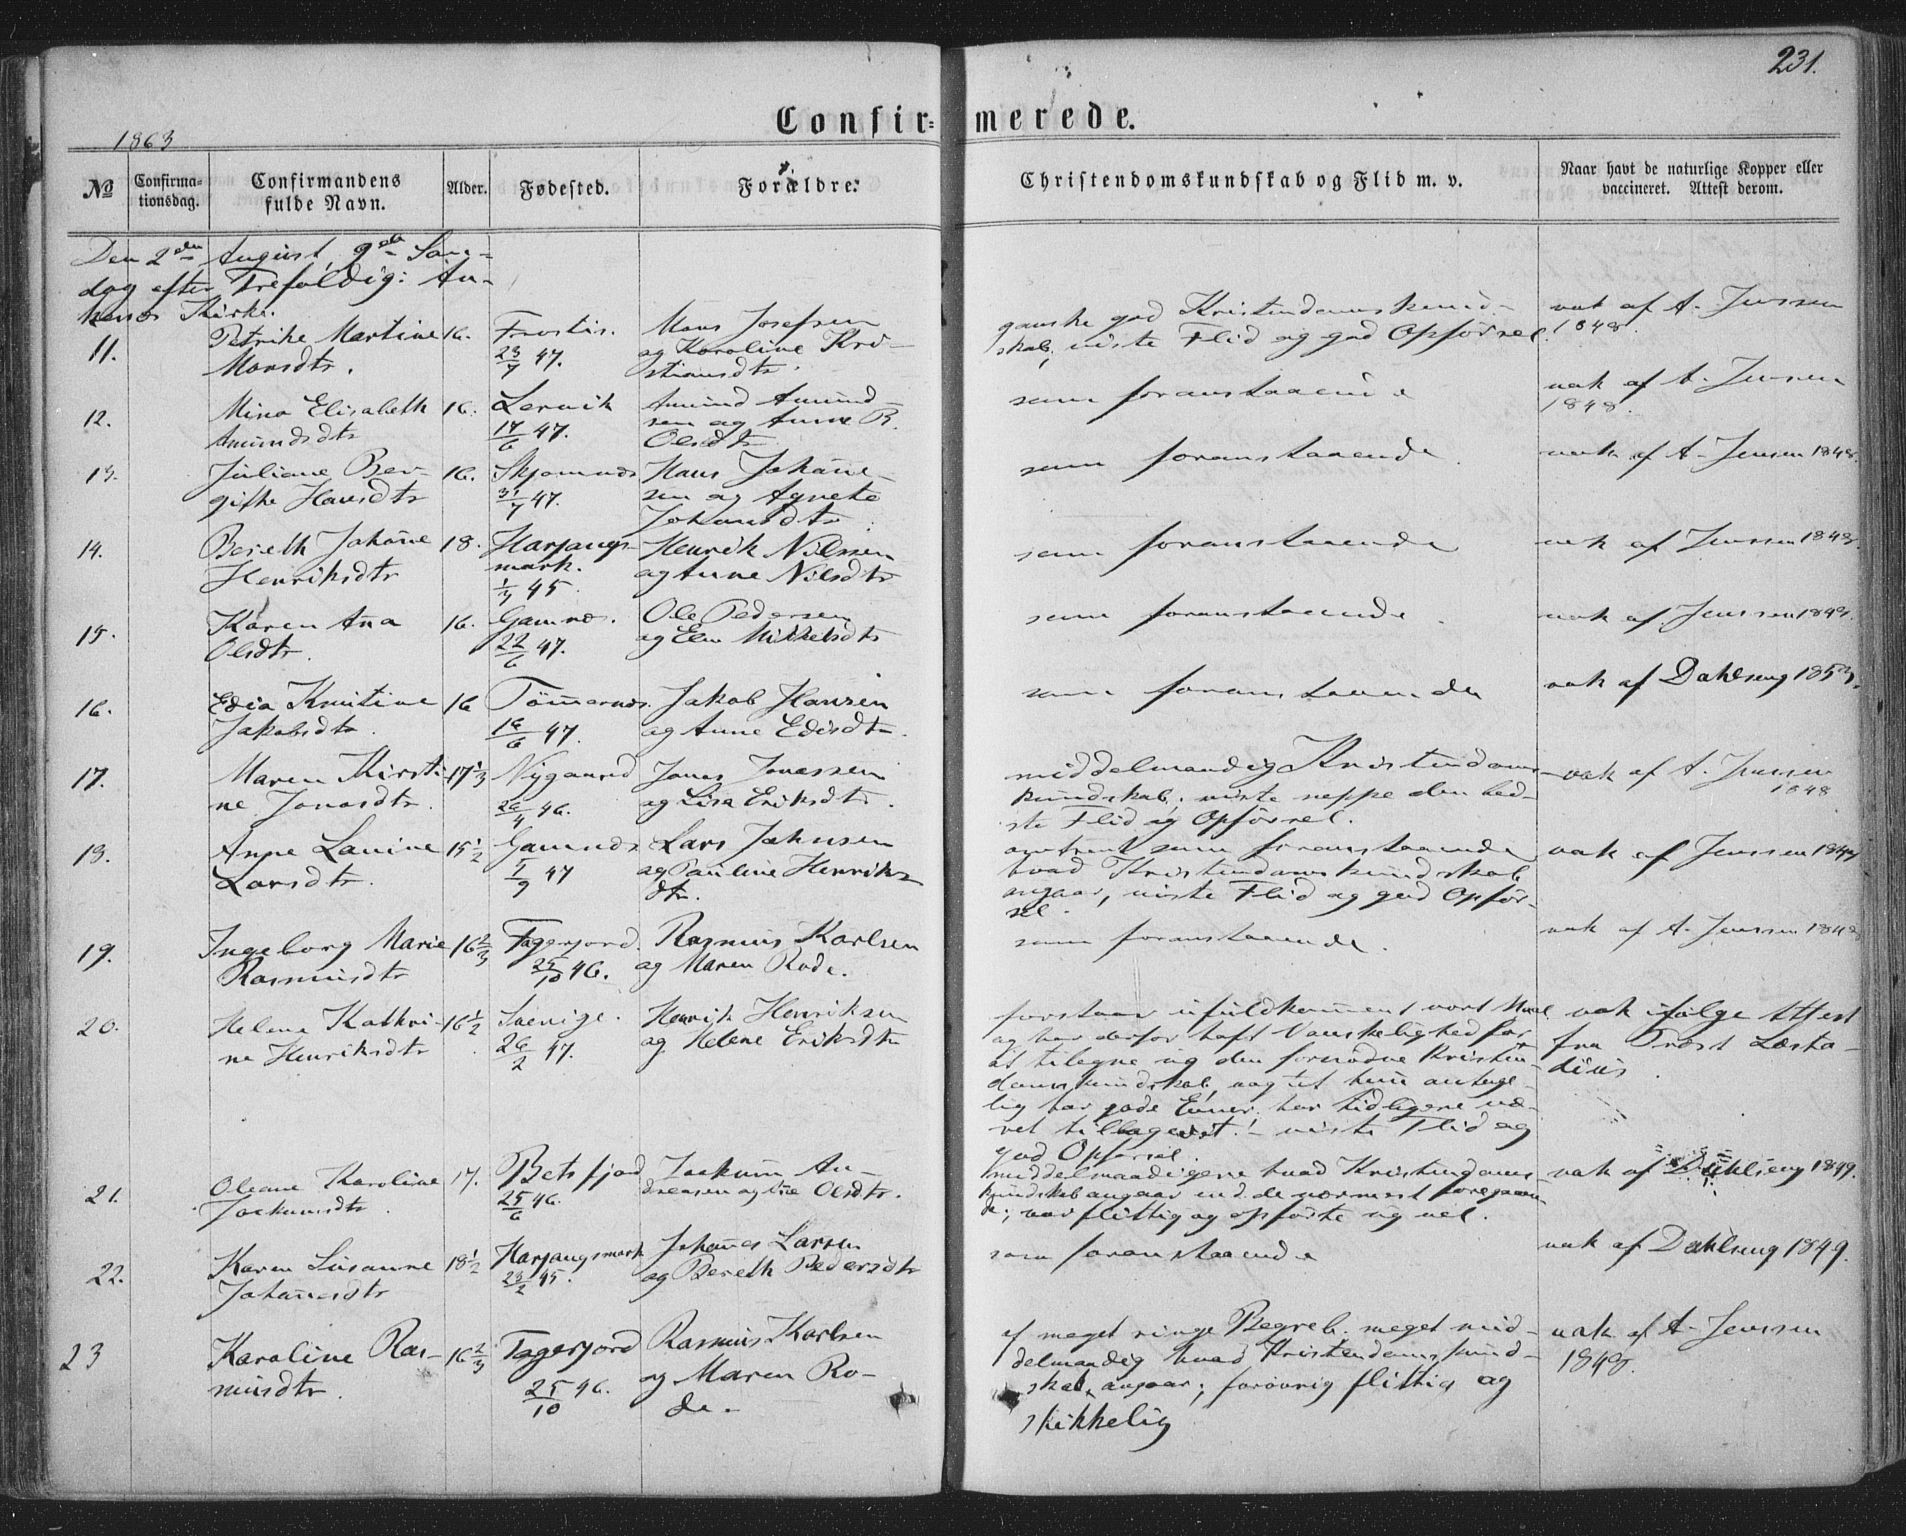 231.
Confir=
merede.
1863
No
Confirma-
tionsdag.
Confirmandens
fulde Navn.
Alder.
Fødested.
Forældre.
Christendomskundskab og Flid m. v.
Naar havt de naturlige Kopper eller
vaccineret. Attest derom.
Den 2den August, 9de Søn-
dag efter Trefoldig: An-
kenes Kirke.
11.
Petrike Martine
Monsdtr.
16.
23/7 47.
Mons Josefsen
og Karoline Kri-
stiansdtr.
ganske god Kristendomskund-
skab, viste Flid og god Opførsel.
vak af A. Jenssen
1848.
12.
Mina Elisabeth
Amundsdtr
16.
Lervik
17/6 47.
Amund Amund-
sen og Anne B.
Olsdtr
som foranstaaende
vak af A. Jenssen
1848.
13.
Juliane Ber-
githe Hansdtr
16.
Skjomnæs
31/7 47.
Hans Johanne-
sen og Agnete
Johansdtr.
som foranstaaende.
vak af A. Jenssen 1848.
14.
Bereth Johanne
Henriksdtr
18.
Harjangs-
mark.
1/7 45.
Henrik Nilssen
og Anne Nilsdtr
som foranstaaende
vak af Jenssen 1848.
15.
Karen Ana
Olsdtr.
16.
Gamnæs.
22/6 47.
Ole Pedersen
og Elen Mikkelsdtr
som foranstaaende.
vak af Jenssen 1849.
16.
Edia Knutine
Jakobsdtr.
16
Tömmernæs.
16/6 47.
Jakob Hansen
og Anne Edisdtr.
som foranstaaende
vak af Dahlseng 1853.
17.
Maren Kirsti-
ne Jonasdtr.
17 1/3
Nygaard
26/4 46.
Jonas Jonassen
og Lisa Eriksdtr.
middelmaadig Kristendoms-
kundskab, viste neppe den bed-
ste Flid og Opførsel.
vak af A. Jenssen
1848
18.
Anne Lavine
Larsdtr.
15 1/2
Gamnæs
5/9 47
Lars Johnsen
og Pauline Henriks-
dtr.
omtrent som foranstaaende
hvad Kristendomskundskab
angaar, viste Flid og god Opfør-
sel.
vak af Jenssen 1849
19.
Ingeborg Marie
Rasmusdtr
16 2/3
Fagerjord.
25/10 46.
Rasmus Karlsen
og Maren Rode.
som foranstaaende.
vak af A. Jenssen 1848
20.
Helena Kathri-
ne Henriksdtr
16 1/2
Sverige.
26/2 47.
Henrik Henriksen
og Helene Eriksdtr
forstaar ufuldkomment vort Maal
og har derfor haft Vanskelighed for
at tilegne sig den fornødne Kristen-
domskundskab, uagtet hun antage-
lig har gode Evner, har tidligere væ-
ret tilbageviist. viste Flid og
god Opførsel.
vak ifølge Attest
fra Prost Læsta-
dius.
21.
Oleane Karoline
Joakumsdtr
17.
Betsfjord
25/6 46.
Joakum An-
dreasen og Ane Olsdtr.
middelmaadigere hvad Kristendoms-
kundskab angaar end de nærmest foregaaen-
de; var flittig og opførte sig vel.
vak af Dahlseng 1849.
22.
Karen Susanne
Johannesdtr
18 1/2
Harjangsmark
23/2 45.
Johannes Larsen
og Bereth Pedersdtr
som foranstaaende
vak af Dahlseng 1849.
23
Karoline Ras-
musdtr.
16 2/3
Fagerjord
25/10 46.
Rasmus Karlsen
og Maren Ro-
de.
af meget ringe Begreb. meget mid-
delmaadig hvad Kristendomskund-
skab angaar; forøvrig flittig og
skikkelig
vak af A. Jenssen
1848.